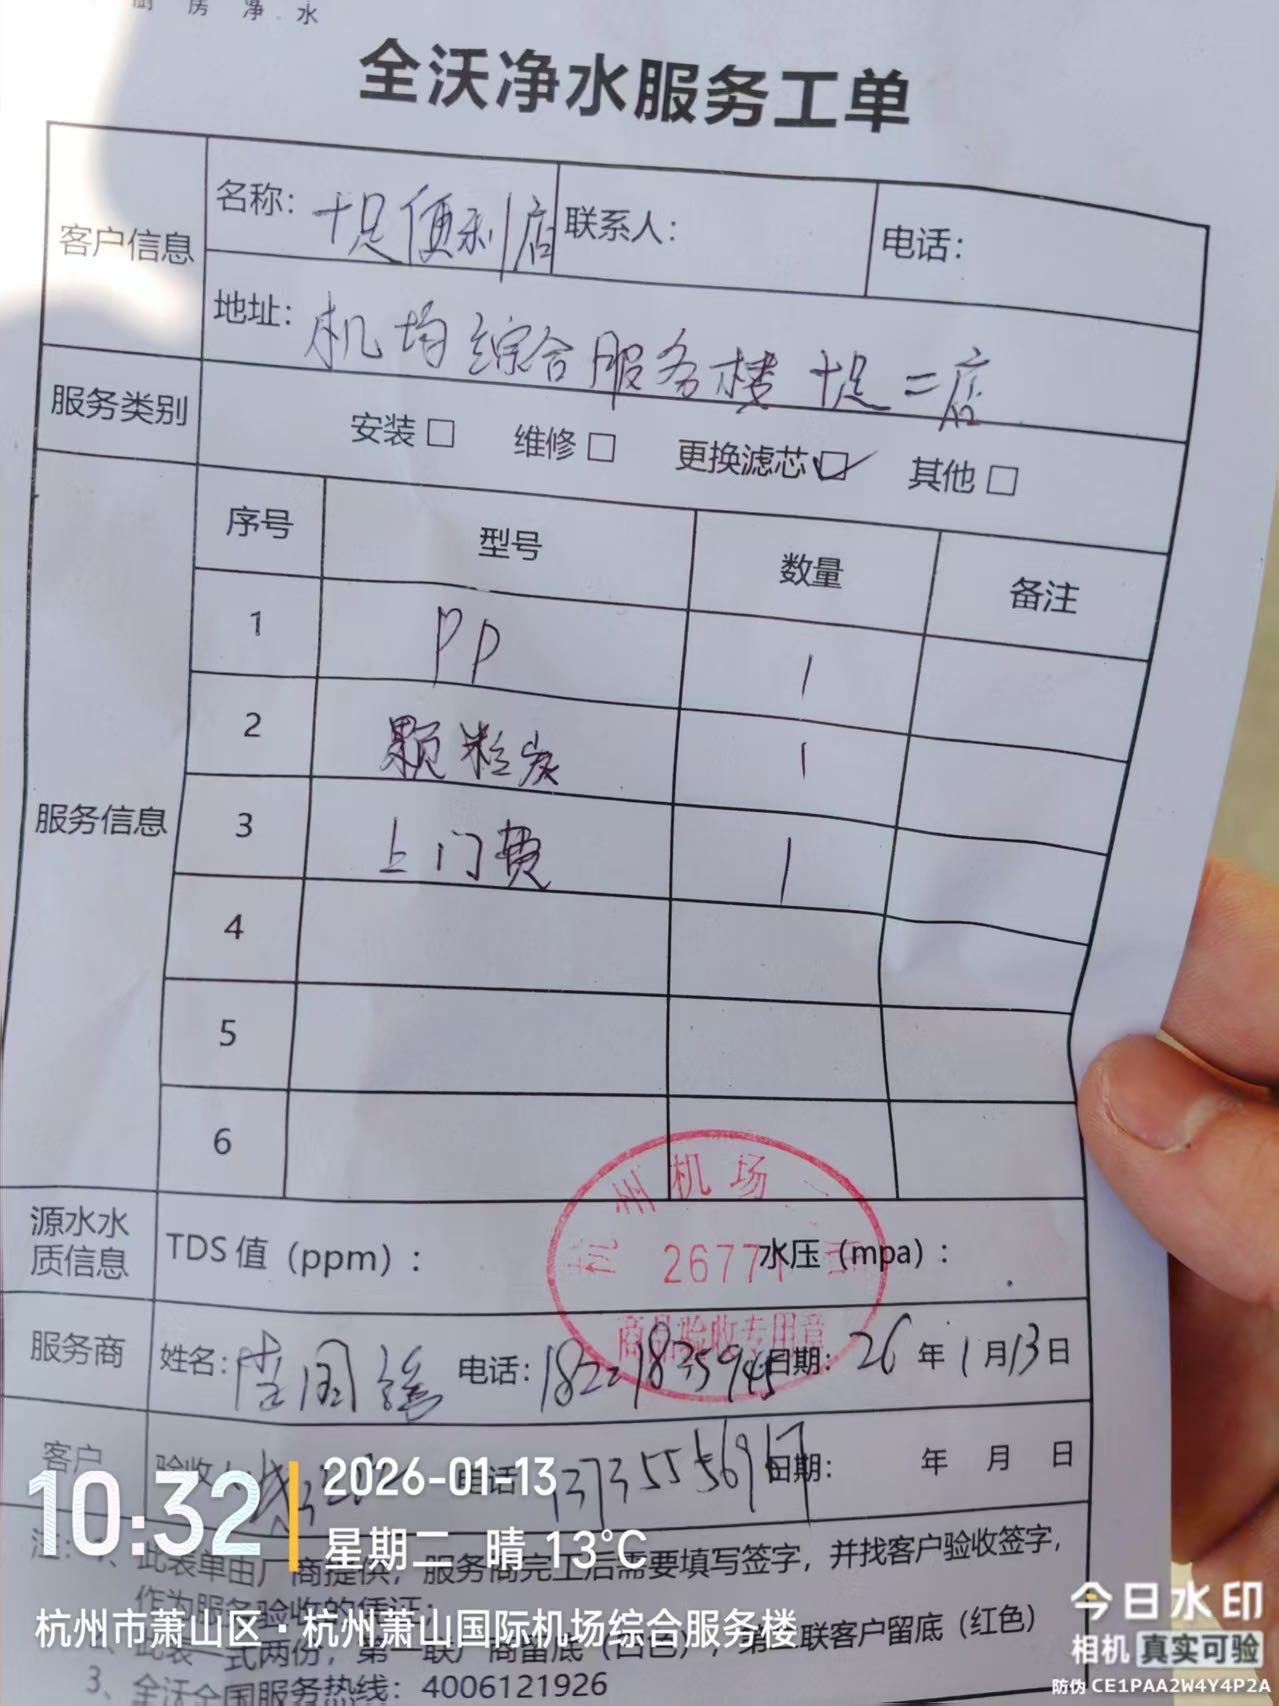 厨房净水
全沃净水服务工单
客户信息
名称：十足便利店 联系人： 电话：
地址：机场综合服务楼十足二店
服务类别 安装□ 维修□ 更换滤芯☑ 其他□
服务信息
序号 型号 数量 备注
1 PP 1
2 颗粒炭 1
3 上门费 1
4
5
6
源水水质信息 TDS 值（ppm）： 水压（mpa）：
杭州机场
2677
商品验收专用章
服务商 姓名： 国 电话： 日期：26 年 1 月 13 日
客户 验收人： 电话 日期： 年 月 日
注：1、此表单由厂商提供，服务商完工后需要填写签字，并找客户验收签字，
作为服务验收的凭证；
2、此表一式两份，第一联厂商留底（白色），第二联客户留底（红色）
3、全沃全国服务热线：4006121926
10:32
2026-01-13
星期二 晴 13°C
杭州市萧山区·杭州萧山国际机场综合服务楼
今日水印
相机 真实可验
防伪 CE1PAA2W4Y4P2A